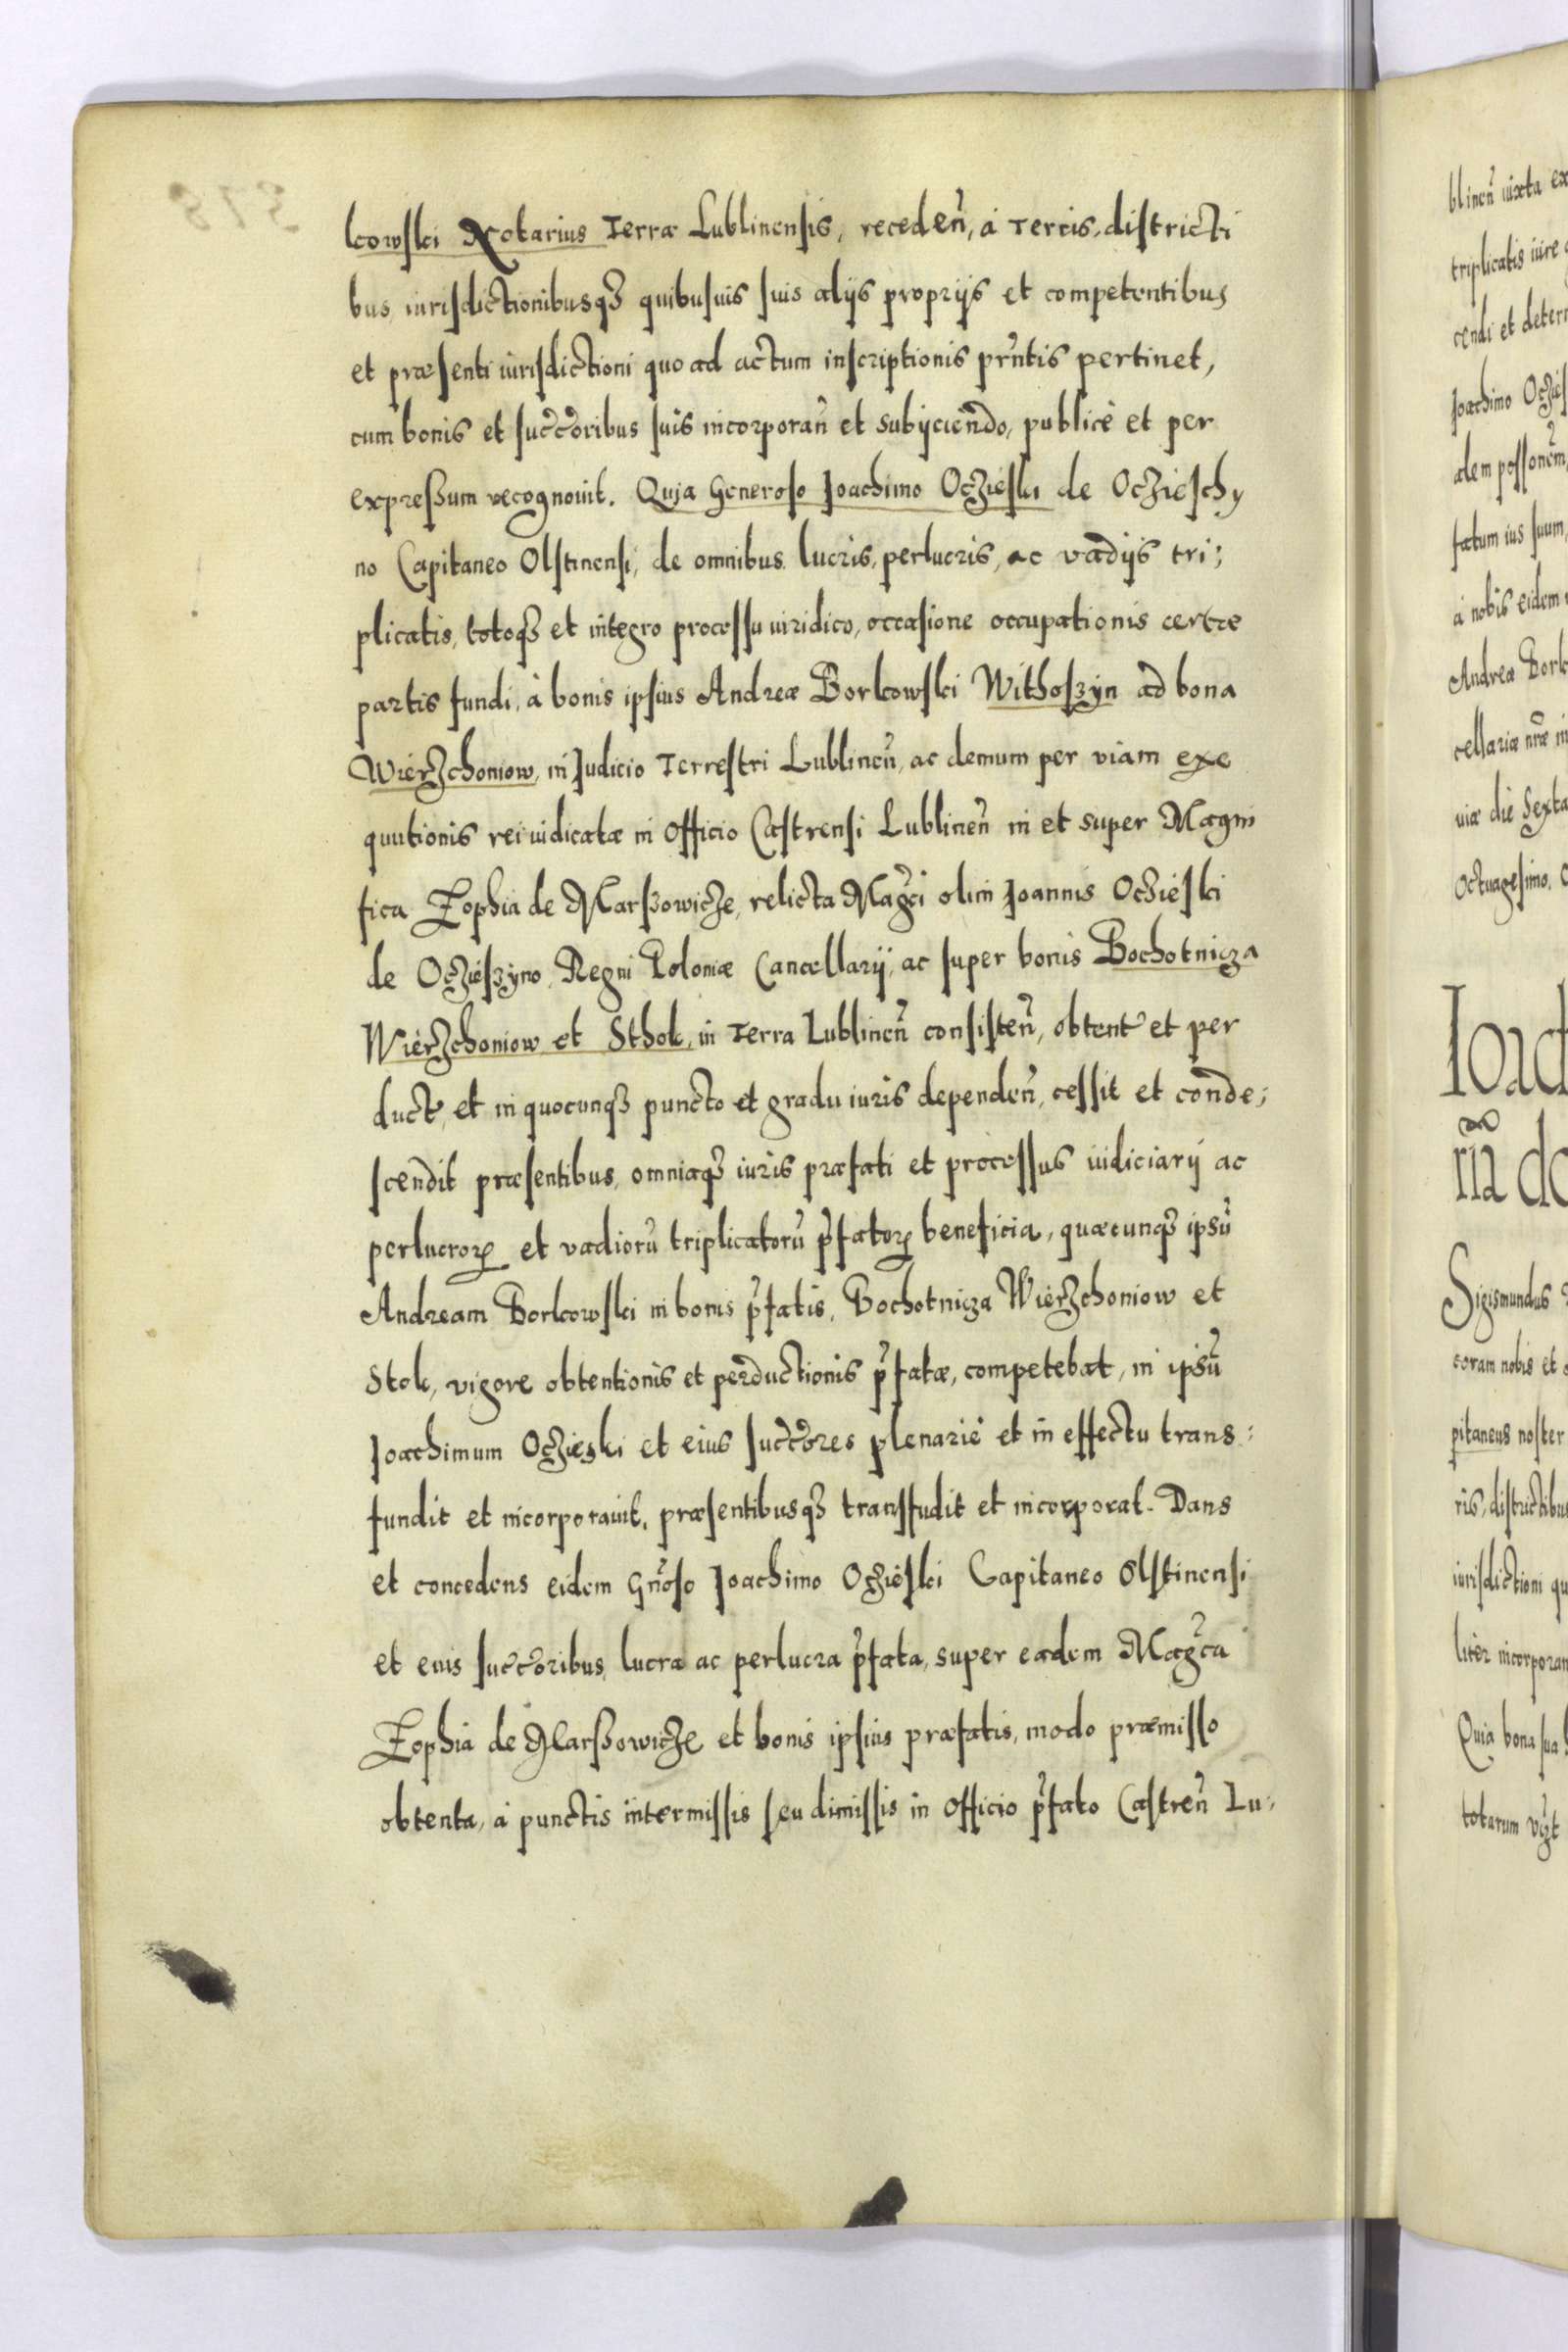 kowski Notarius Terræ Lublinensis, receden̄, à Terris, districti
bus iurisdictionibusq₃ quibusuis suis alijs proprijs et competentibus
et præsenti iurisdictioni quo ad actum inscriptionis prn̄tis pertinet,
cum bonis et succ̄oribus suis incorporan̄ et subijciendo, publicè et per
expreßum recognouit. Quia Generoso Joachimo Oczieski de Oczieschy
no Capitaneo Olstinensi, de omnibus lucris, perlucris, ac vadijs tri;
plicatis, totoq₃ et integro processu iuridico, occasione occupationis certæ
partis fundi, à bonis ipsius Andreæ Borkowski Withoszyn ad bona
Wierzchoniow, in Judicio Terrestri Lublinen̄, ac demum per viam exe
quutionis rei iudicatæ in Officio Castrensi Lublinen̄ in et super Magni
fica Zophia de Marszowicze, relicta Maḡci olim Joannis Oczieski
de Oczieszyno, Regni Poloniæ Cancellarij, ac super bonis Bochotnicza
Wierzchoniow et Sthok, in Terra Lublinen̄ consisten̄, obtent et per
duct, et in quocunq₃ puncto et gradu iuris dependen̄, cessit et conde;
scendit præsentibus, omniaq₃ iuris præfati et processus iudiciarij ac
perlucroꝝ et vadiorū triplicatorū p̄fatoꝝ beneficia, quæcunq₃ ipsū
Andream Borkowski in bonis p̄fatis, Bochotnicza Wierzchoniow et
Stok, vigore obtentionis et perductionis p̄fatæ, competebat, in ipsū
Joachimum Oczieski et eius succ̄ores plenariè et in effectu trans:
fundit et incorporauit, præsentibusq₃ transfudit et incorporat. Dans
et concedens eidem Gn̄oso Joachimo Oczieski Capitaneo Olstinensi
et eius succ̄oribus, lucra ac perlucra p̄fata, super eadem Maḡca
Zophia de Marszowicze et bonis ipsius præfatis, modo præmisso
obtenta, à punctis intermissis seu dimissis in Officio p̄fato Castren̄ Lu:
blinen̄ iuxta
triplicatis iure
cendi et
Joachimo
fatum ius suum,
à nobis eidem
Andrea
cellariæ nr̄æ
uiæ die Sexta
Octuagesimo,
Sigismundus
coram nobis et
pitaneus noster
iurisdictioni
Quia bona sua
totarum